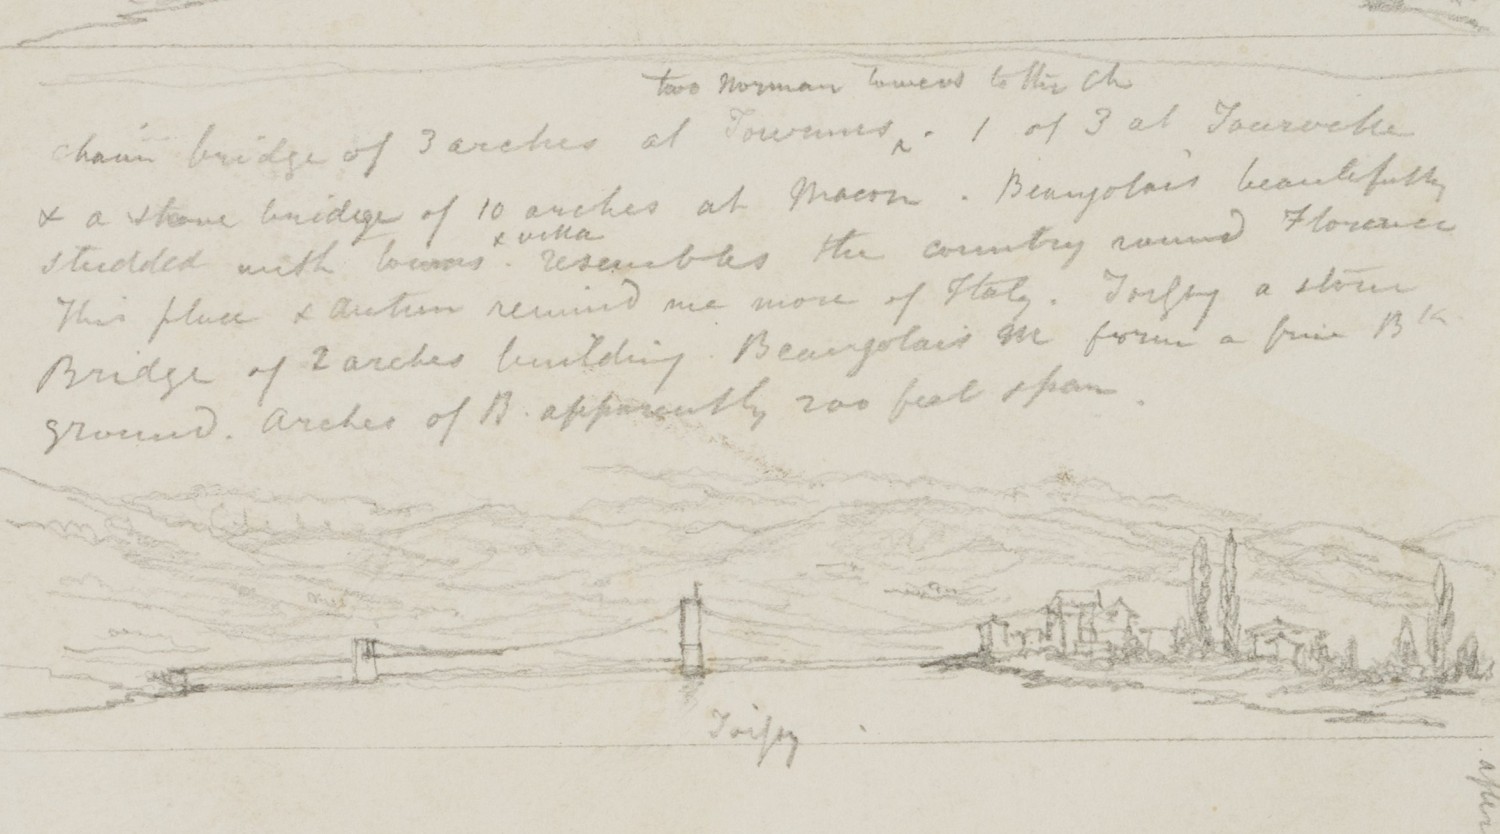 two Norman towers to the Ch
Chain bridge of 3 arches at Tournus ^. 1 of 3 at
& a stone bridge of 10 arches at Macon. Beaujolais beautifully
& villa
studded with towns. resembles the country round Florence
This place & Autun remind me more of Italy. Toissy a stone
Bridge of 2 arches building. Beaujolais M form a fine Bk
ground. Arches of B. apparently 200 feet span.
Toissy
after